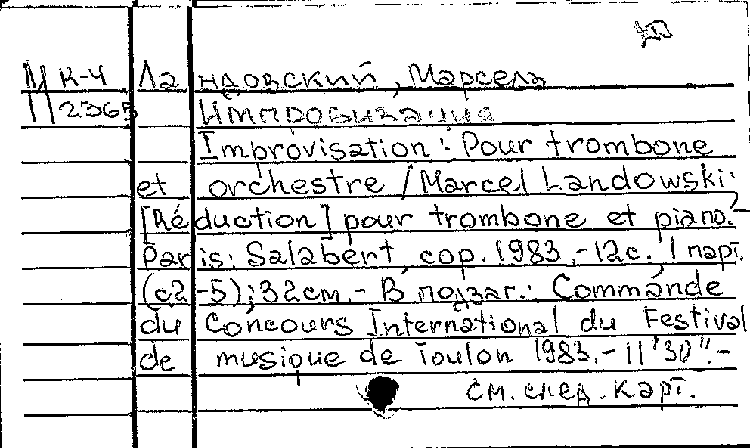 М К-4 Ландовский, Марсель
П 2365 Импровизация
Improvisation: Pour trombone
et orchestre / Marcel Landowski:
[Réduction] pour trombone et piano.-
Paris: Salabert, cop. 1983,-12c., 1 парт.
(c2-5); 32см.- В подзаг.: Commande
du Concours International du Festival
de musique de Toulon 1983.-11'30".-
См. след. карт.